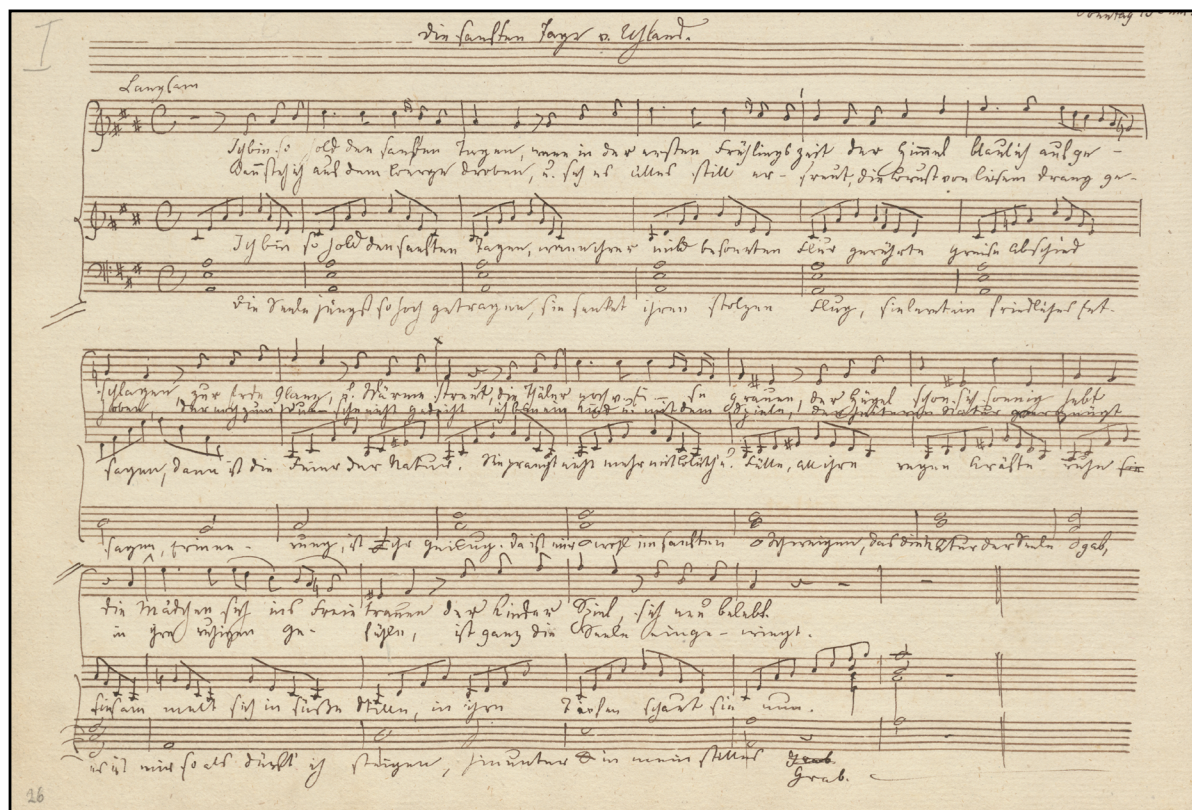 I
Sonntag
die sanften Tage v. Uhland.
Langsam
Ich bin so hold den sanften Tagen, wenn in der ersten Frühlingszeit der Himmel blaulich aufge-
Dann steh ich auf dem Berge droben, u. seh es alles still er-freut, die Brust von leisem Drang ge-
Ich bin so hold den sanften Tagen, wann ihrer mild besonnten Flur gerührte Greise Abschied
die Seele jüngst so hoch getragen, sie senket ihren stolzen Flug, sie lernt ein friedliches Ent-
schlagen, zur Erde Glanz u. Wärme streut, die Thäler noch von Eise grauen, der Hügel schon sich sonnig hebt
hoben, der noch zum Wunsche nicht gedeiht ich bin ein Kind u. mit dem Spiele, der heiteren Natur vergnügt
sagen, dann ist die Feier der Natur. Sie prangt nicht mehr mit Blüth u. Fülle, all ihre regen Kräfte ruhn
sagen, Erinne-rung, ist Ihr genug. da ist mir wohl im sanften Schweigen, das die Natur der Seele gab,
die Mädchen sich ins Freie trauen der Kinder Spiel, sich neu belebt.
in ihre ruhigen Ge-fühle, ist ganz die Seele einge-wiegt.
einsam melt sich in süße Stille, in ihre Tiefen schaut sie nun.
es ist mir so als dürft ich steigen, hinunter in mein stilles
Grab.
26